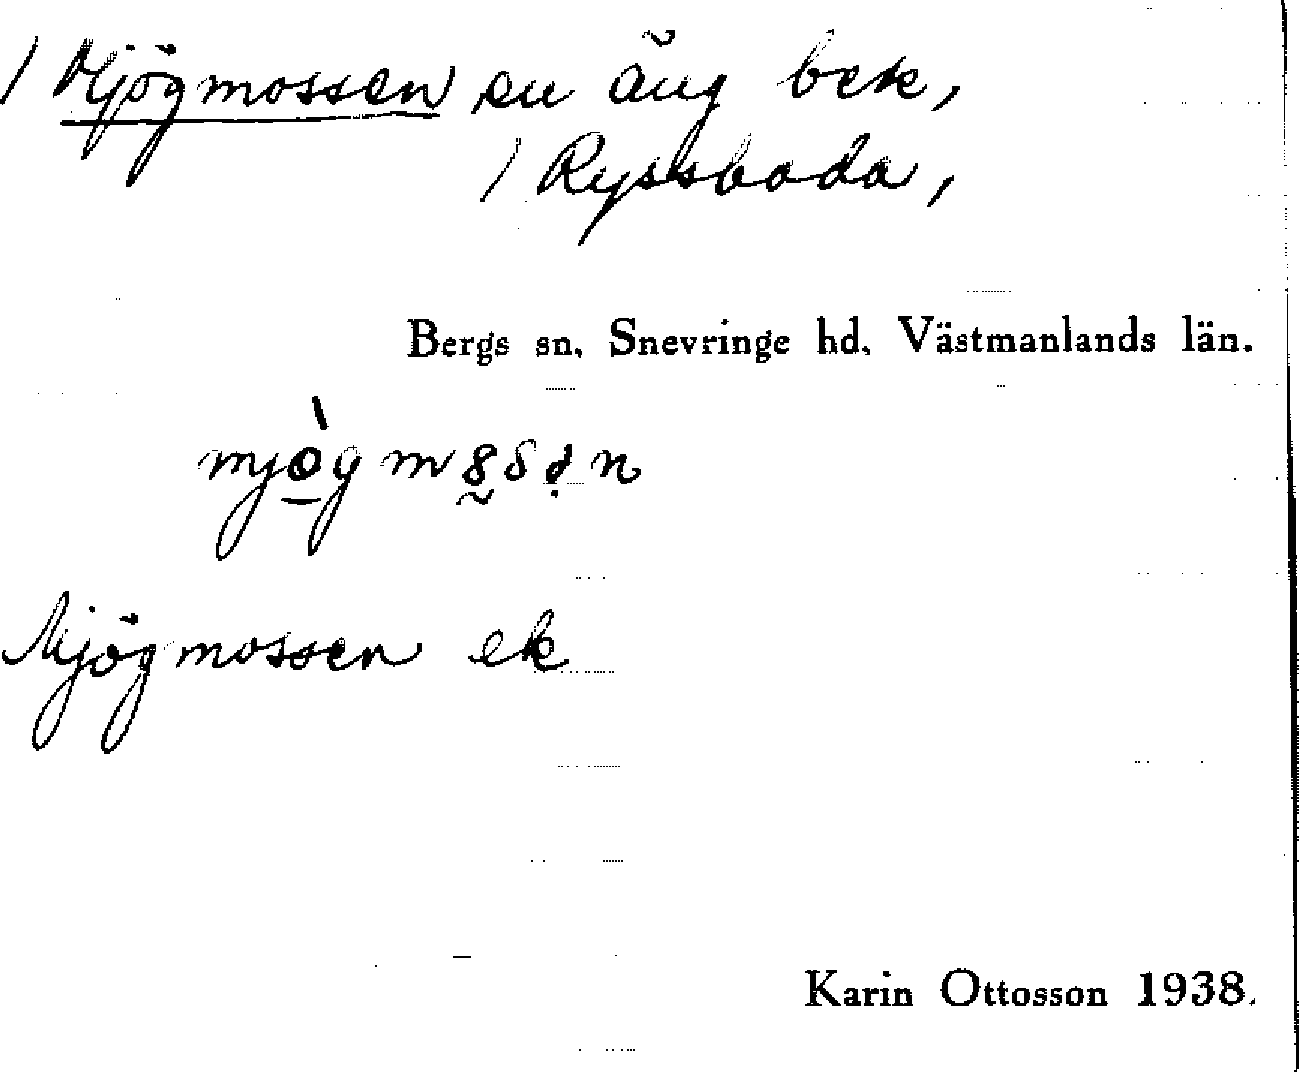 / Mjögmossen en äng bek,
/ Ryssboda,
Bergs sn, Snevringe hd, Västmanlands län.
Mjögmossen ek
Karin Ottosson 1938.